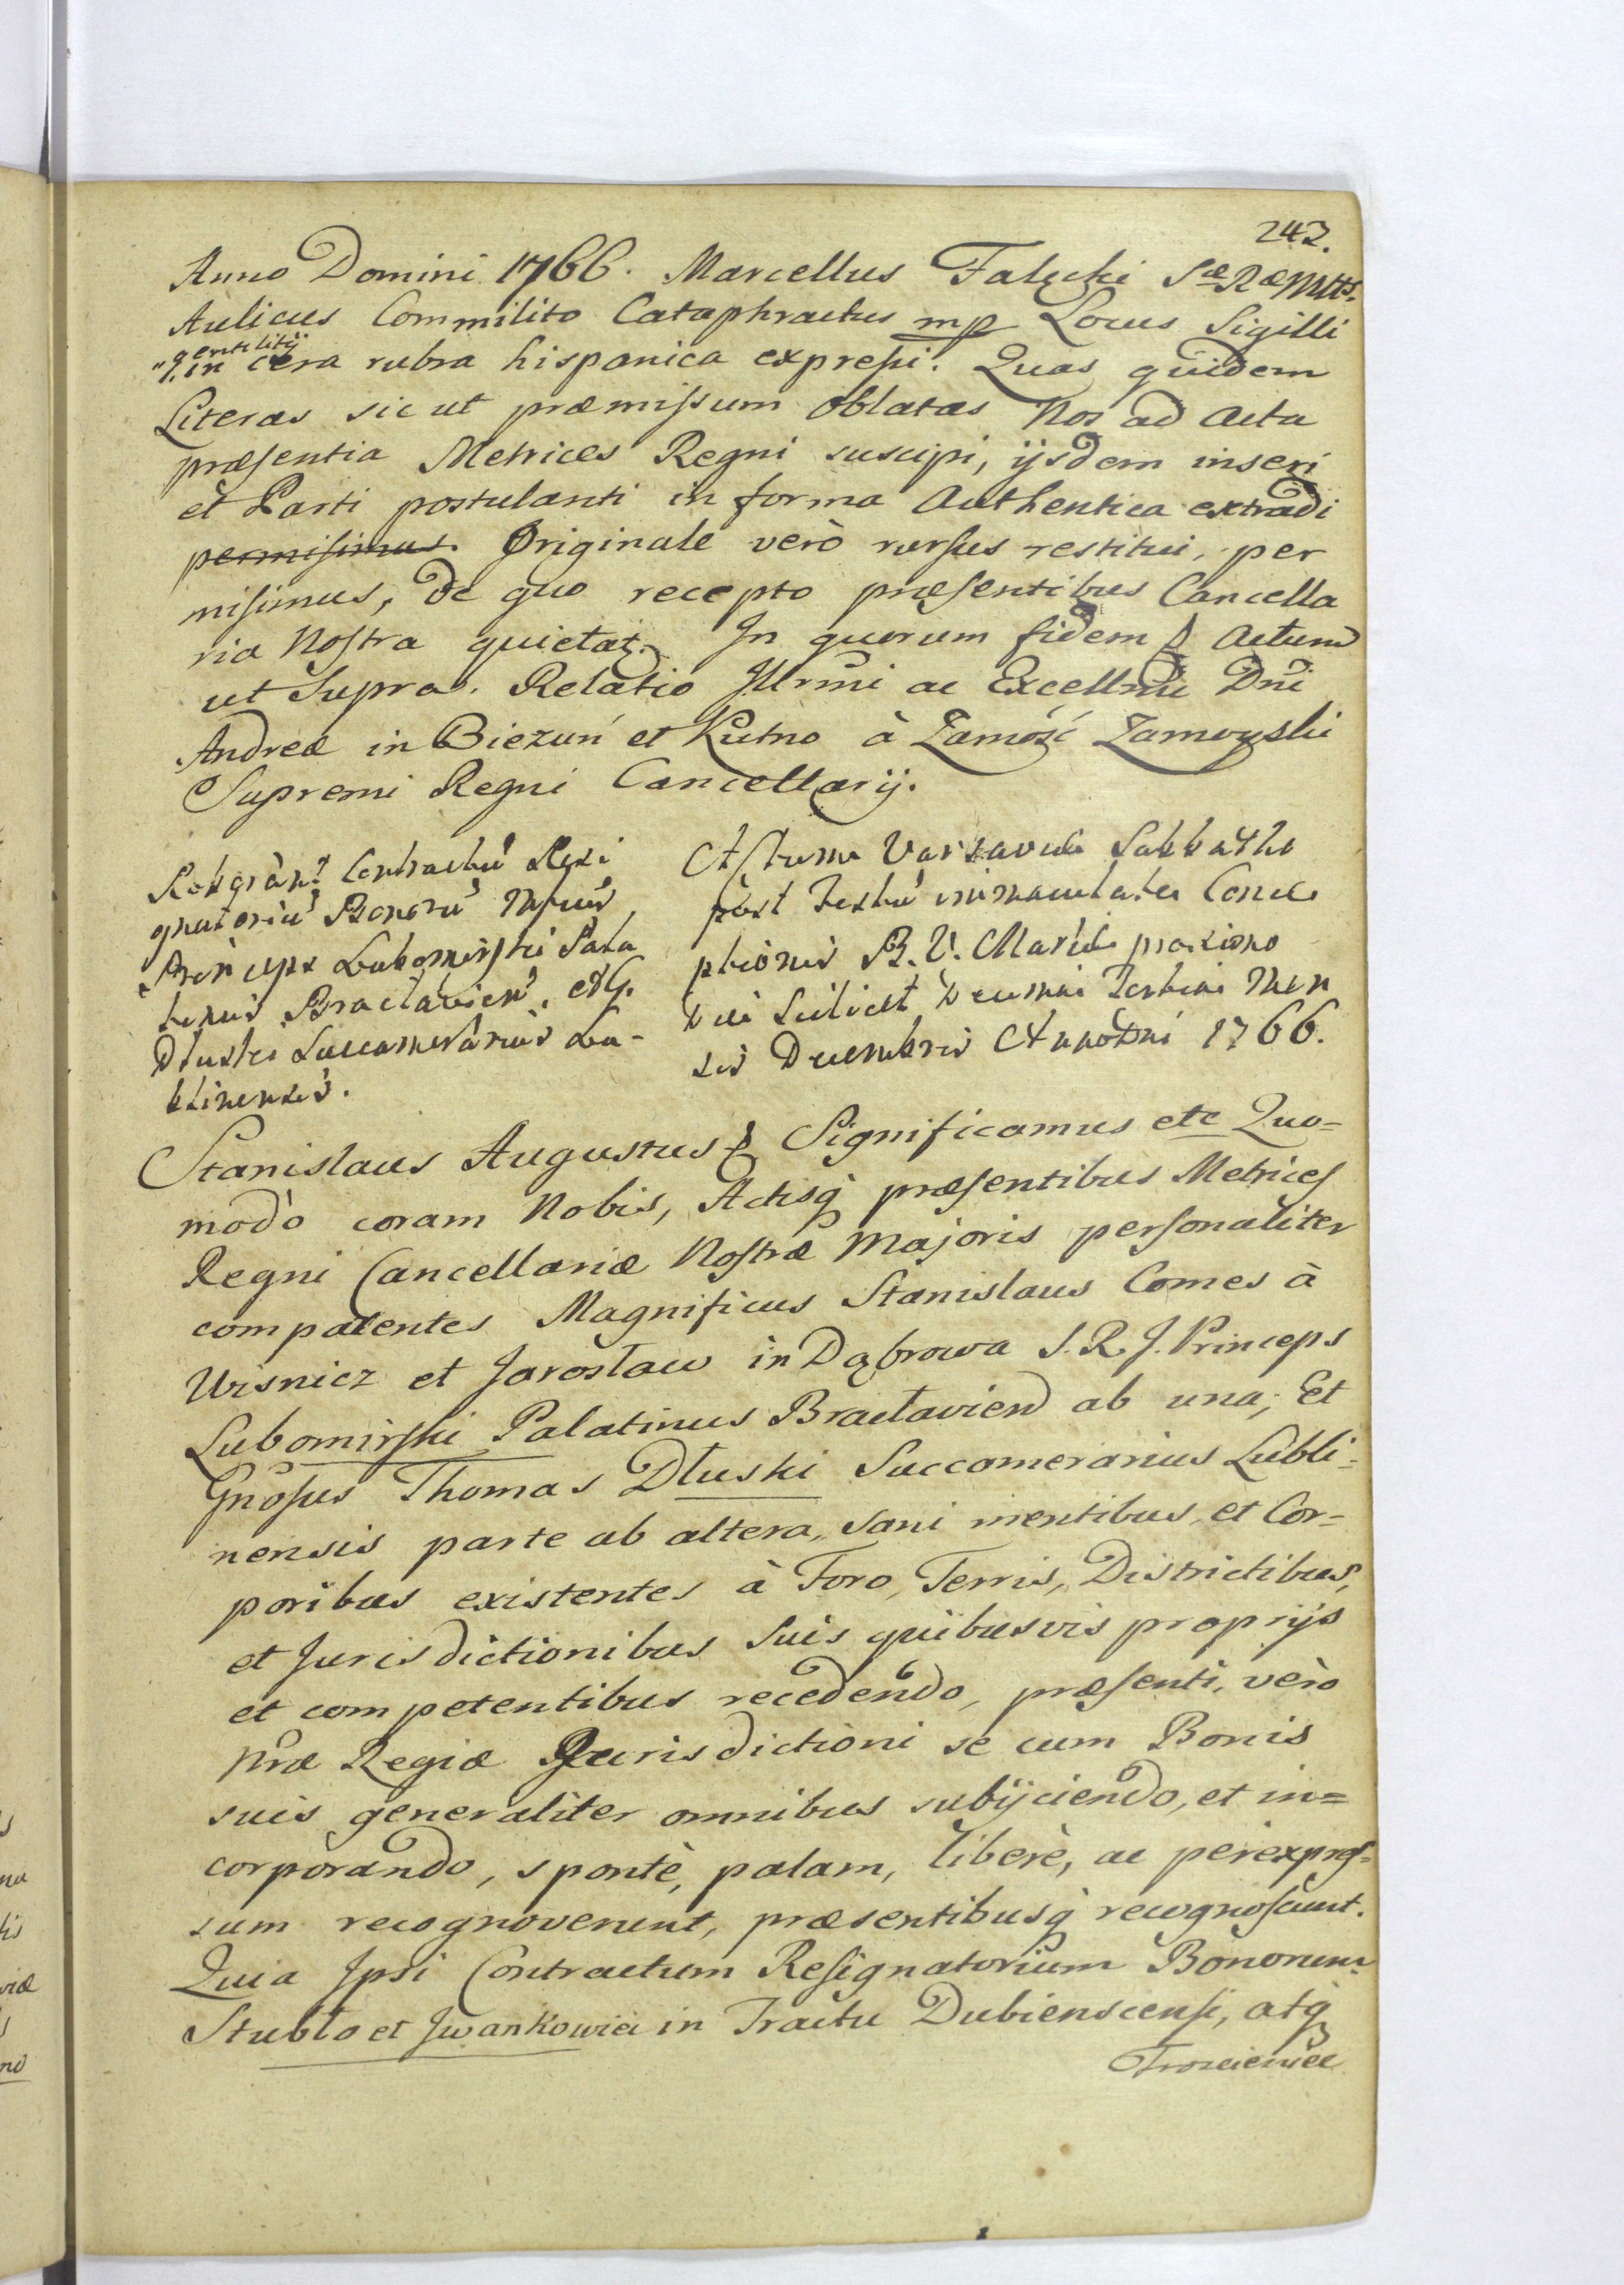 243.
Anno Domini 1766. Marcellus Falęcki Sæ Ræ Mttis
Aulicus Commilito Cataphractus mp Locus Sigilli
gentilitij
in cera rubra hispanica expreſsi. Quas quidem
Literas sic ut præmiſsum oblatas Nos ad Acta
præſentia Metrices Regni suscipi, ijsdem inseri
et Parti postulanti in forma Authentica extradi
permiſimus. Originale verò rursus restitui, per
miſimus, de quo recepto præſentibus Cancella
ria Noſtra quietat. In quorum fidem Actum
ut Supra. Relatio Illrmi ac Excellmi Dni
Andreæ in Biezuń et Kutno à Zamość Zamoyski
Supremi Regni Cancellarij.
Contractu Resi
gnatoriu Bonoru
Princeps Lubomirſki Pala
tinus Braclavien. et G.
Dłuski Succamerarius Lu-
blinensis.
Actum Varsaviæ Sabbatho
post Festu immaculatæ Conce
ptionis B. V. Mariæ proximo
Die Scilicet Decima Tertia Men
sis Decembris Anno Dni 1766.
Stanislaus Augustus Significamus etc Quo=
modò coram Nobis, Actisq præſentibus Metrices
Regni Cancellariæ Noſtræ Majoris perſonaliter
comparentes Magnificus Stanislaus Comes à
Wisnicz et Jarosław in Dąbrowa S. R. J. Princeps
Lubomirſki Palatinus Braclavien ab una; Et
Gnoſus Thomas Dłuski Succamerarius Lubli-
nensis parte ab altera, sani mentibus, et Cor=
poribus existentes à Foro, Terris, Districtibus,
et Jurisdictionibus Suis quibusvis proprijs
et competentibus recedendo, præſenti, verò
Nræ Regiæ Jurisdictioni se cum Bonis
suis generaliter omnibus subijciendo, et in=
corporando, spontè, palam, liberè, ac per expreſ=
sum recognoverunt, præsentibusq recognoſcunt.
Quia Jpsi Contractum Reſignatorium Bonorum
Stubło et Jwankowice in Tractu Dubiensensi, atq